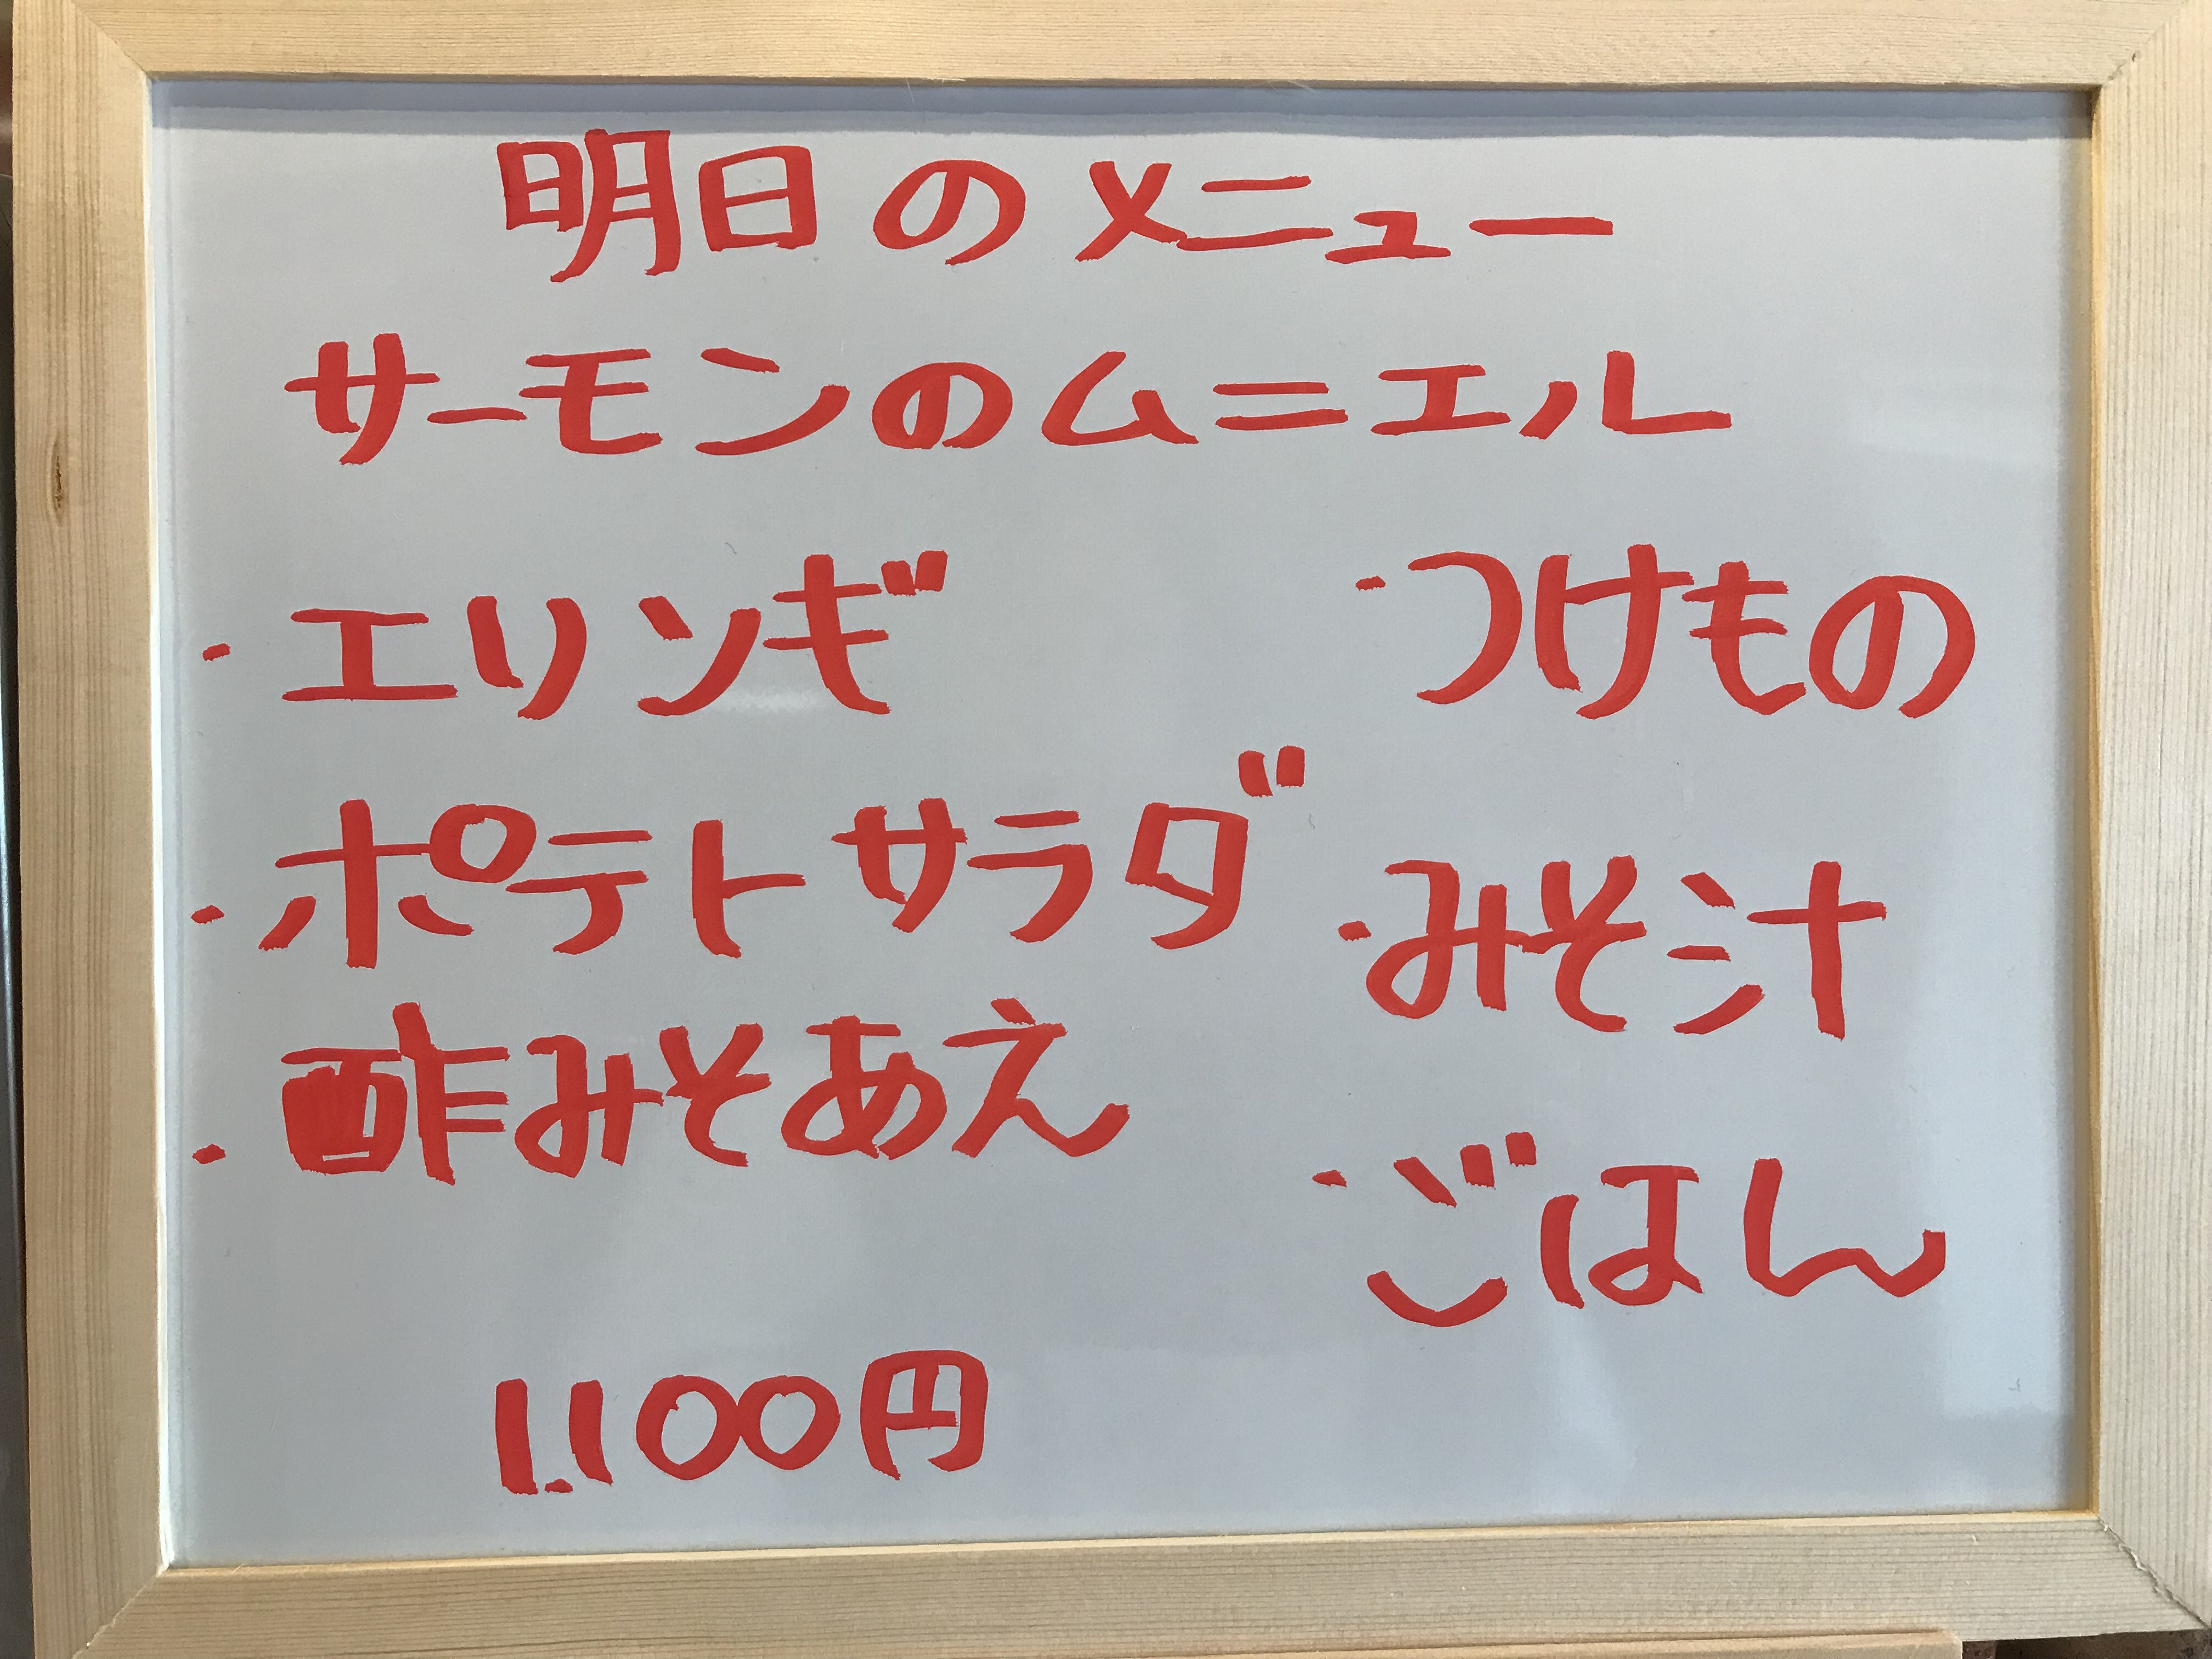 明日のメニュー
サーモンのムニエル
・エリンギ
・ポテトサラダ
・酢みそあえ
・つけもの
・みそ汁
・ごはん
1,100円